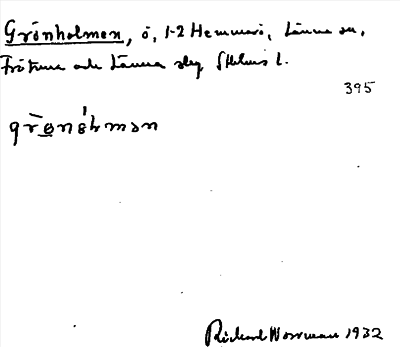 Grönholmen, ö, 1-2 Hemmarö, Länna sn,
Frötuna och Länna slg Sthlms l.
395
Richard Norrman 1932